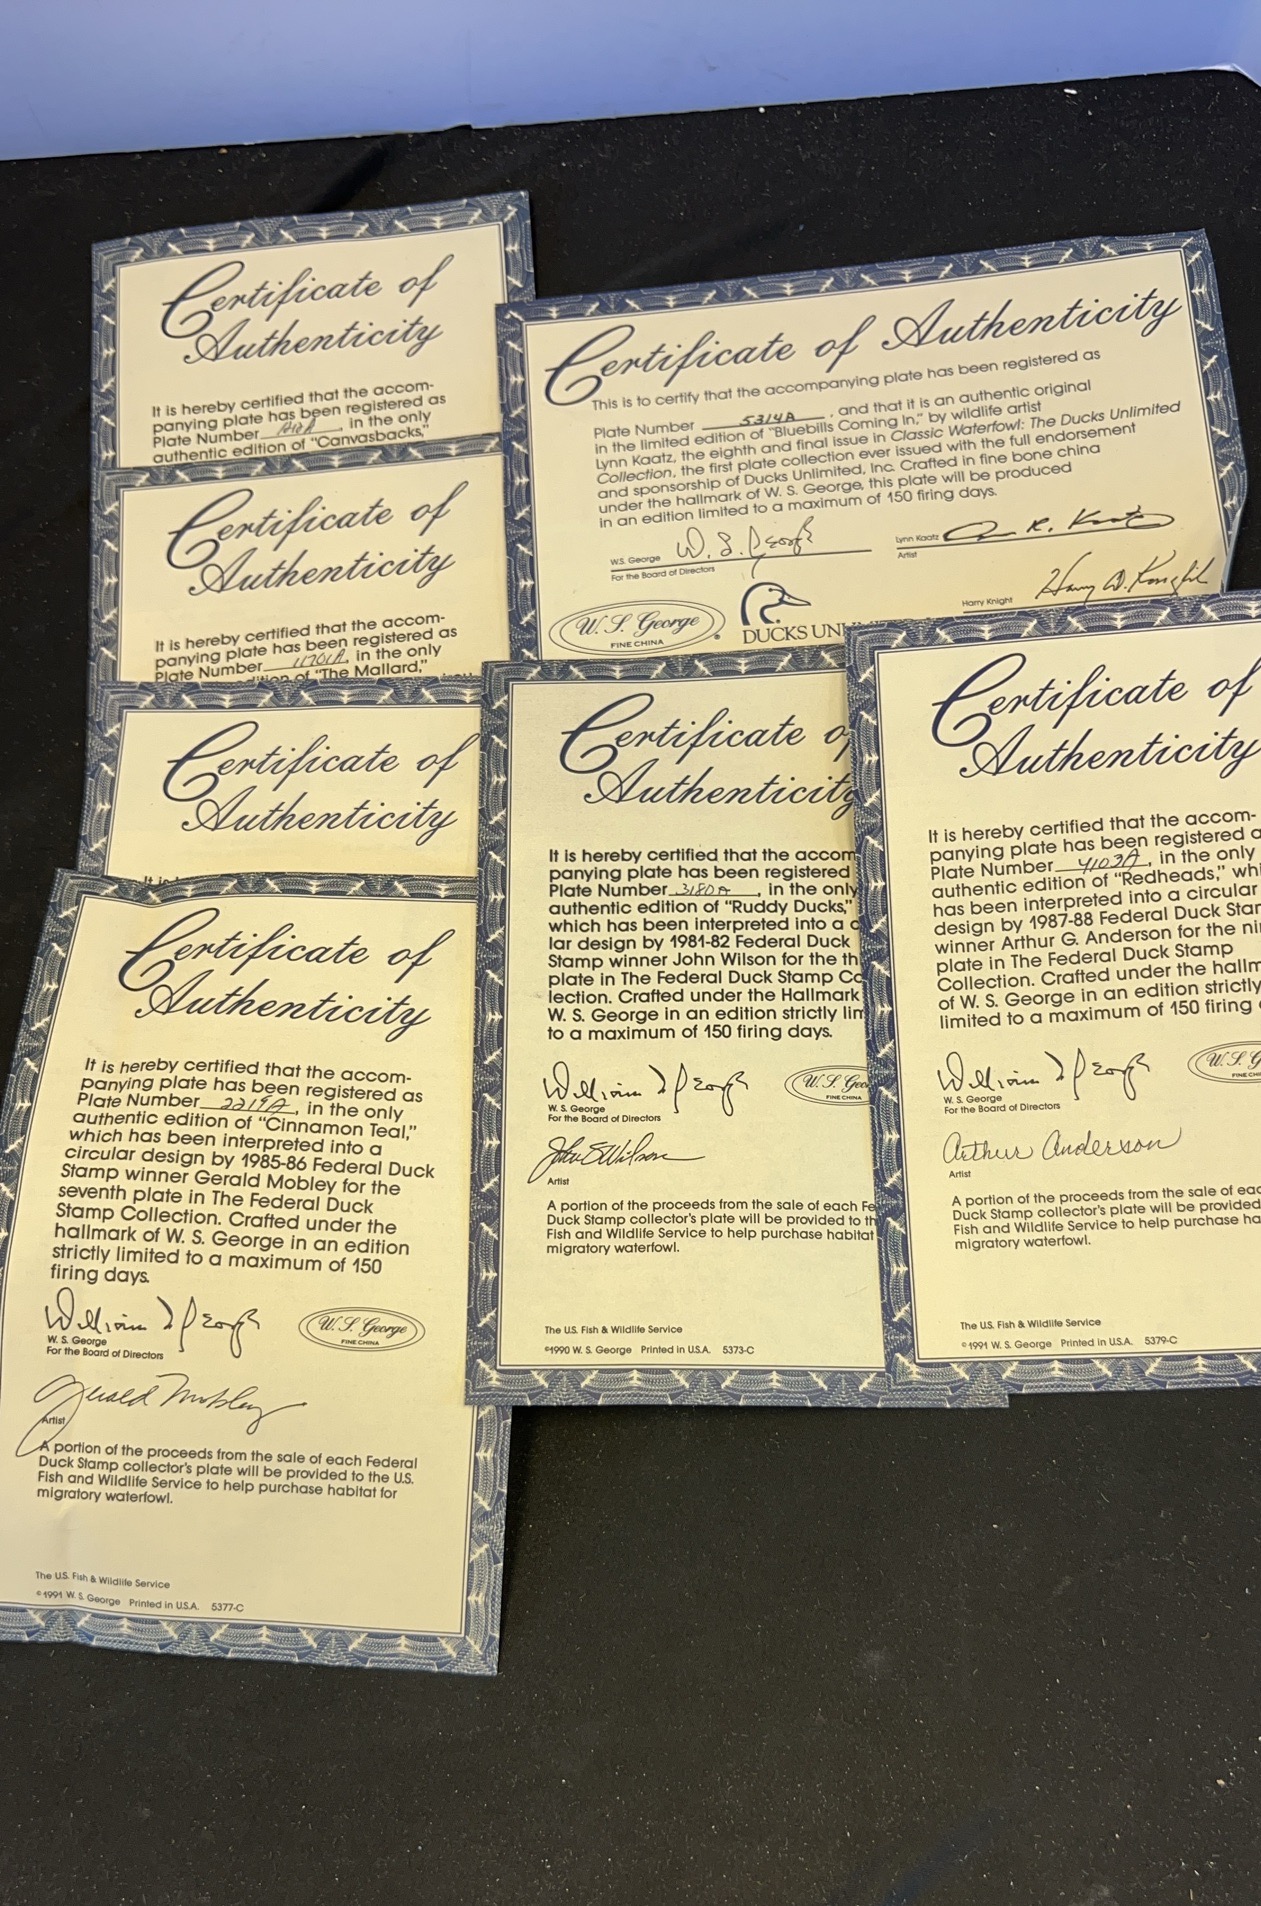 Certificate of
Authenticity
It is hereby certified that the accom-
panying plate has been registered as
Plate Number , in the only
authentic edition of "Canvasbacks,"
Certificate of
Authenticity
It is hereby certified that the accom-
panying plate has been registered as
Plate Number , in the only
of "The Mallard,"
Certificate of
Authenticity
It is
Certificate of
Authenticity
It is hereby certified that the accom-
panying plate has been registered as
Plate Number 2219A, in the only
authentic edition of "Cinnamon Teal,"
which has been interpreted into a
circular design by 1985-86 Federal Duck
Stamp winner Gerald Mobley for the
seventh plate in The Federal Duck
Stamp Collection. Crafted under the
hallmark of W. S. George in an edition
strictly limited to a maximum of 150
firing days.
William S George
W. S. George
For the Board of Directors
W. S. George
FINE CHINA
Gerald Mobley
Artist
A portion of the proceeds from the sale of each Federal
Duck Stamp collector's plate will be provided to the U.S.
Fish and Wildlife Service to help purchase habitat for
migratory waterfowl.
The U.S. Fish & Wildlife Service
©1991 W. S. George Printed in U.S.A. 5377-C
Certificate of Authenticity
This is to certify that the accompanying plate has been registered as
Plate Number 5314A, and that it is an authentic original
in the limited edition of "Bluebills Coming In," by wildlife artist
Lynn Kaatz, the eighth and final issue in Classic Waterfowl: The Ducks Unlimited
Collection, the first plate collection ever issued with the full endorsement
and sponsorship of Ducks Unlimited, Inc. Crafted in fine bone china
under the hallmark of W. S. George, this plate will be produced
in an edition limited to a maximum of 150 firing days.
W. S. George
W.S. George
For the Board of Directors
Lynn Kaatz
Artist
R. Kaatz
Harry Knight
Harry D. Knight
W. S. George
FINE CHINA
DUCKS UN
Certificate o
Authenticity
It is hereby certified that the accom
panying plate has been registered
Plate Number 3180A, in the only
authentic edition of "Ruddy Ducks,"
which has been interpreted into a c
lar design by 1981-82 Federal Duck
Stamp winner John Wilson for the th
plate in The Federal Duck Stamp Co
lection. Crafted under the Hallmark
W. S. George in an edition strictly lim
to a maximum of 150 firing days.
William S George
W. S. George
For the Board of Directors
W. S. Geo
FINE CHINA
John S Wilson
Artist
A portion of the proceeds from the sale of each Fe
Duck Stamp collector's plate will be provided to th
Fish and Wildlife Service to help purchase habitat
migratory waterfowl.
The U.S. Fish & Wildlife Service
©1990 W. S. George Printed in U.S.A. 5373-C
Certificate of
Authenticity
It is hereby certified that the accom-
panying plate has been registered a
Plate Number 4103A, in the only
authentic edition of "Redheads," whi
has been interpreted into a circular
design by 1987-88 Federal Duck Star
winner Arthur G. Anderson for the ni
plate in The Federal Duck Stamp
Collection. Crafted under the hallm
of W. S. George in an edition strictly
limited to a maximum of 150 firing
William S George
W. S. George
For the Board of Directors
W. S. G
FINE CHI
Arthur Anderson
Artist
A portion of the proceeds from the sale of eac
Duck Stamp collector's plate will be provided
Fish and Wildlife Service to help purchase ha
migratory waterfowl.
The U.S. Fish & Wildlife Service
©1991 W. S. George Printed in U.S.A. 5379-C